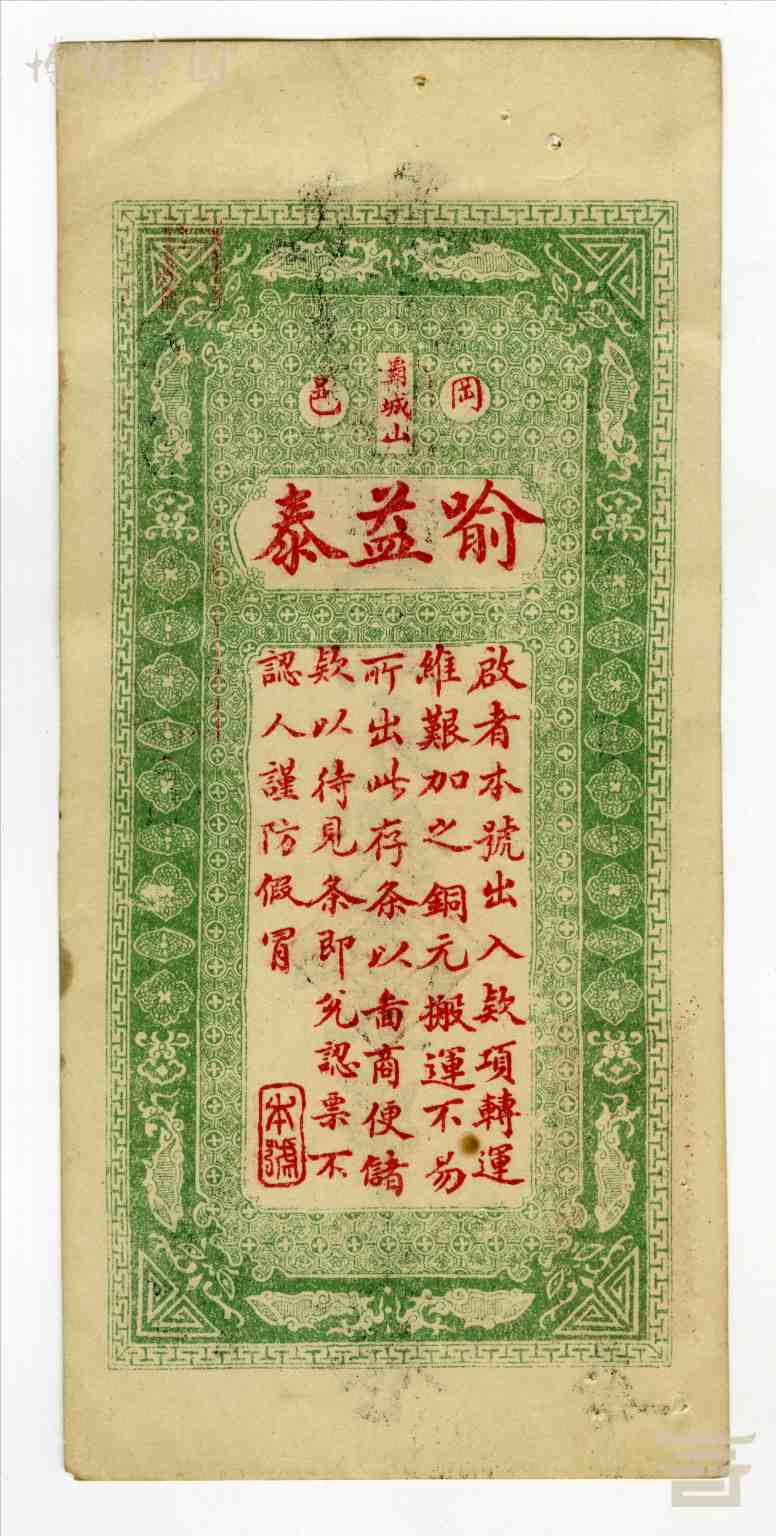 博物中国
岡邑
霸城山
喻益泰
啟者本號出入欵項轉運
維艱加之銅元搬運不易
所出此存条以啚商便儲
欵以待見条即兑認票不
認人謹防假冒
本號